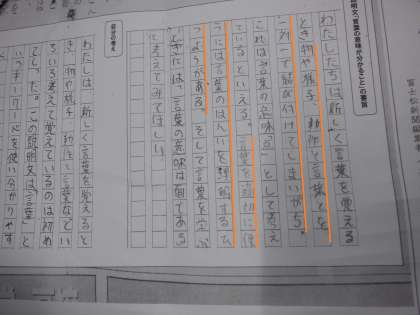 説明文「言葉の意味が分かること」の要旨
わたしたちは新しく言葉を覚える
とき、物や様子、動作と言葉とを
一対一で結び付けてしまいがち。
これは言葉の意味を「点」として考え
ているといえる。言葉を適切に使
うには言葉のはんいを理解するひ
つようがある。そして言葉を学ぶ
ときには、「言葉の意味は面である
に考えてみてほしい。
自分の考え
わたしは、新しく言葉を覚えると
き、物や様子、動作と言葉などい
ろいろ考えて覚えているのは初め
て
この説明文は「言葉」と
いうキーワードを使い分かりやす